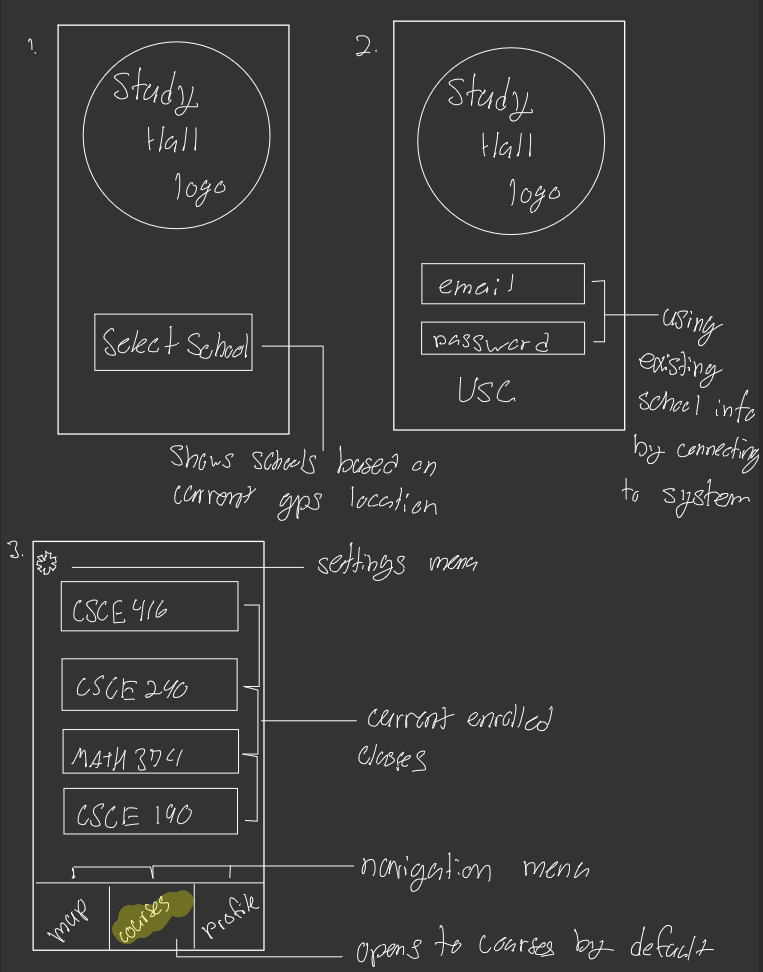 1.
Study
Hall
logo
Select School
Shows schools based on
current gps location
2.
Study
Hall
logo
email
password
USC
using
existing
school info
by connecting
to system
3.
settings menu
CSCE 416
CSCE 240
MATH 374
CSCE 190
current enrolled
classes
navigation menu
map
courses
profile
opens to courses by default